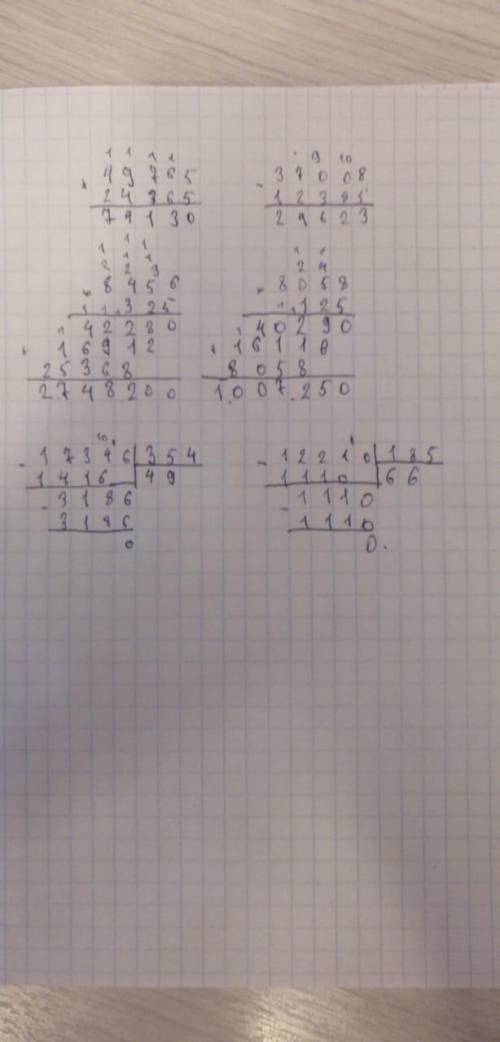 1 1 1 1
49765
+
24365
74130
. 9 10
37008
-
12385
24623
1 1 1
2 2 3
8456
×
325
42280
+
16912
25368
2748200
2 4
8058
×
125
40290
+
16116
8058
1007250
10
- 17346 354
1416 49
- 3186
3186
0
- 12210 185
1110 66
- 1110
1110
0.